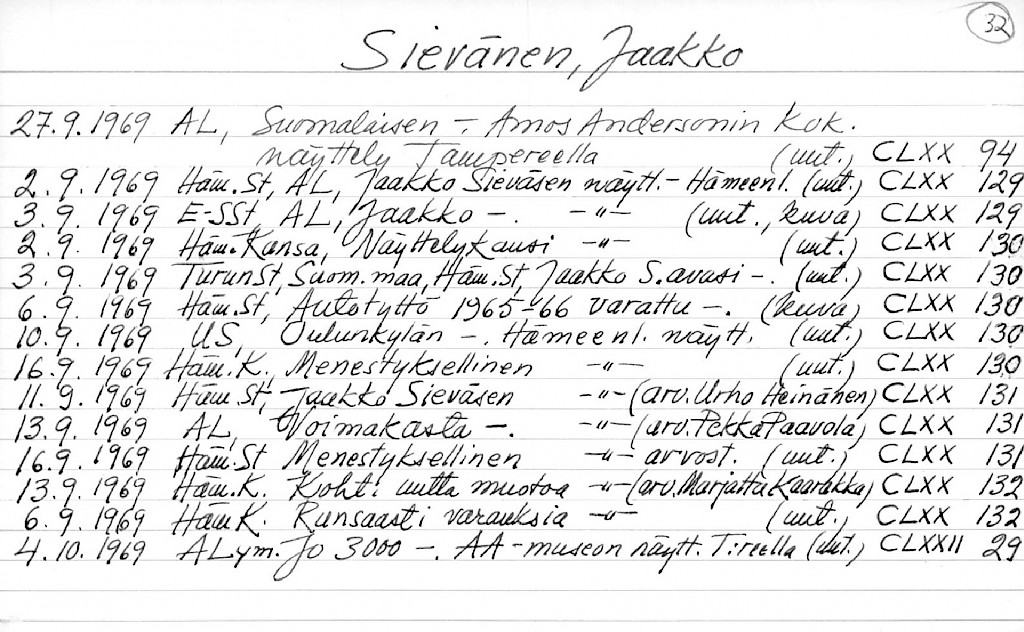 32
Sievänen, Jaakko
27.9.1969 AL, Suomalaisen -. Amos Andersonin kok.
näyttely Tampereella (uut.) CLXX 94
2.9.1969 Häm.St, AL, Jaakko Sieväsen näytt.- Hämeenl. (uut.) CLXX 129
3.9.1969 E-SSt, AL, Jaakko -. -"- (uut., kuva) CLXX 129
2.9.1969 Häm.Kansa, Näyttelykausi -"- (uut.) CLXX 130
3.9.1969 TurunSt, Suom.maa, Häm.St, Jaakko S.avasi -. (uut.) CLXX 130
6.9.1969 Häm.St, Autotyttö 1965-66 varattu -. (kuva) CLXX 130
10.9.1969 US, Oulunkylän -. Hämeenl. näytt. (uut.) CLXX 130
16.9.1969 Häm.K. Menestyksellinen -"- (uut.) CLXX 130
11.9.1969 Häm.St, Jaakko Sieväsen -"- (arv. Urho Heinänen) CLXX 131
13.9.1969 AL, Voimakasta -. -"- (arv. Pekka Paavola) CLXX 131
16.9.1969 Häm.St Menestyksellinen -"- arvost. (uut.) CLXX 131
13.9.1969 Häm.K. Kohti uutta muotoa -"- (arv. Marjatta Kaarakka) CLXX 132
6.9.1969 Häm K. Runsaasti varauksia -"- (uut.) CLXX 132
4.10.1969 AL ym. Jo 3000 -. AA-museon näytt. T:reella (uut.) CLXXII 29